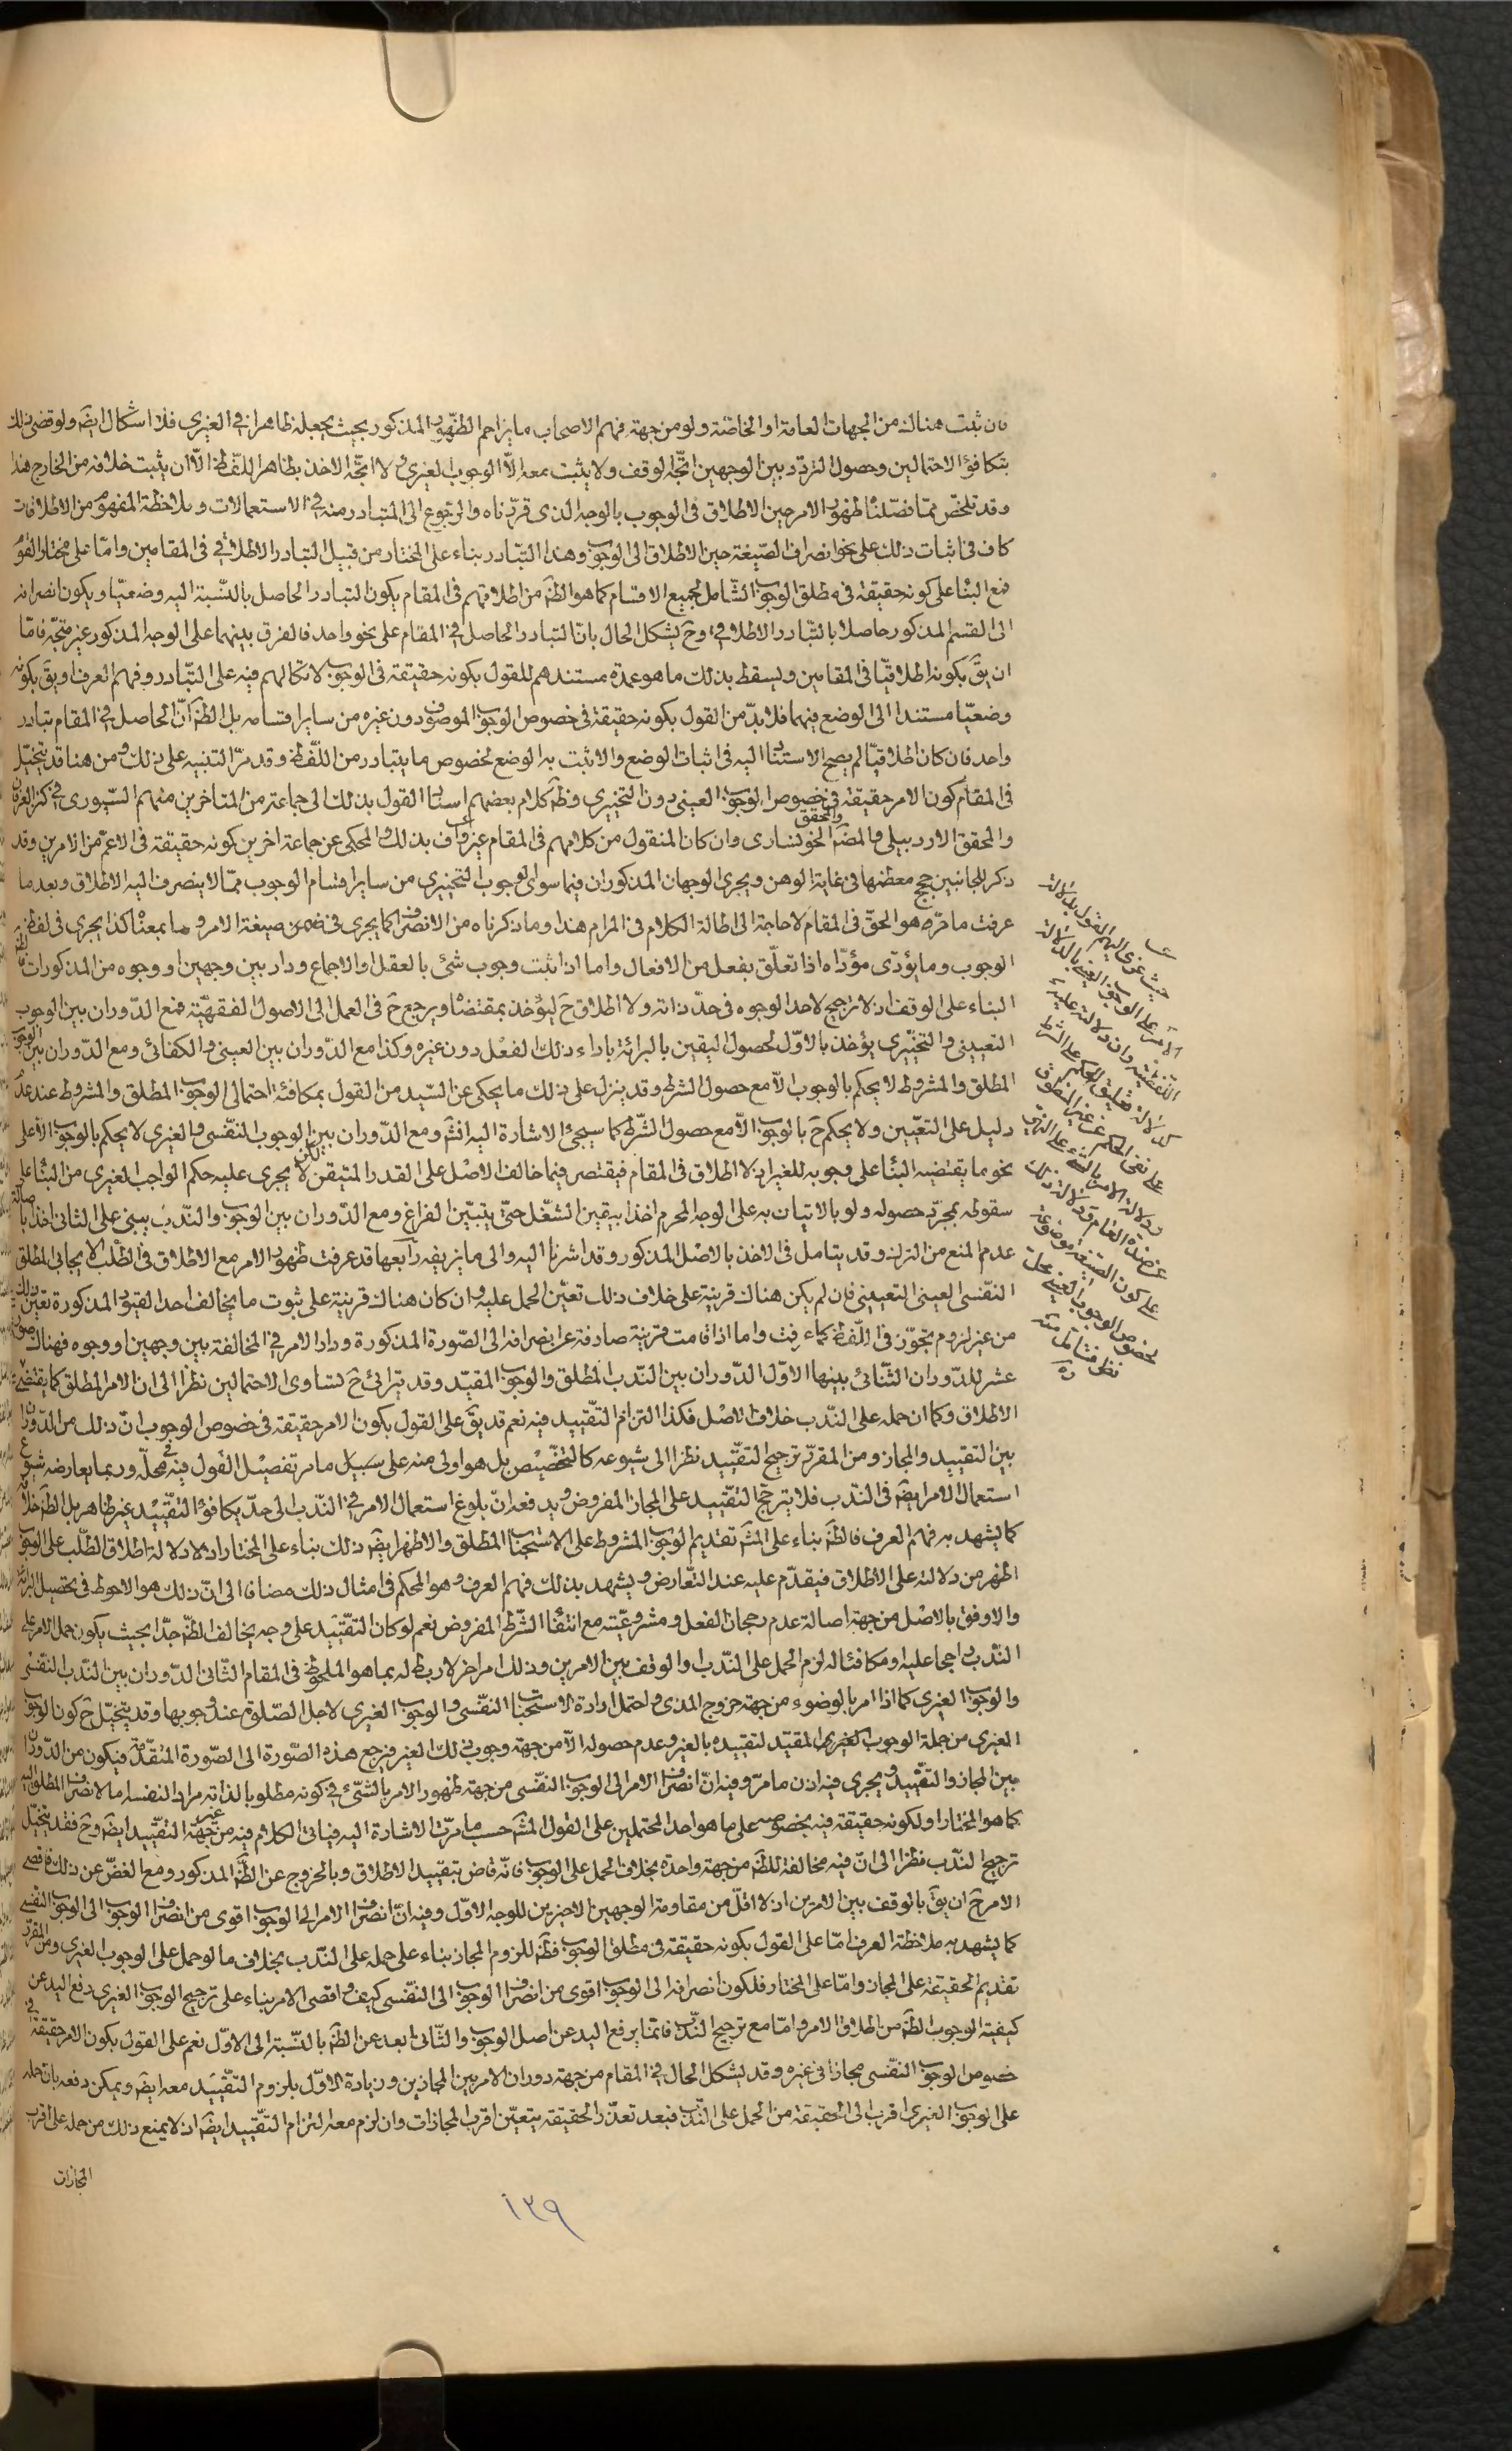 فان ثبت هناك من الجهات العامة او الخاصة ولو من جهة فهم الاصحاب ما يزاحم الظهور المذكور بحيث يجعله ظاهرا في الغيري فلا اشكال ايضَ ولو قضى ذلك
بتكافؤ الاحتمالين وحصول التردد بين الوجهين اتجه الوقف ولا يثبت معه الا الوجوب الغيري والا اتجه الاخذ بظاهر اللفظ الا ان يثبت خلافه من الخارج هذا
وقد تلخص مما فصلنا ظهور الامر حين الاطلاق في الوجوب بالوجه الذى قررناه والرجوع الى المتبادر منه في الاستعمالات وملاحظة المفهوم من الاطلاقات
كاف في اثبات ذلك على نحو انصراف الصيغة حين الاطلاق الى الوجوب وهذا التبادر بناء على المختار من قبيل التبادر الاطلاقي في المقامين واما على مختار القوم
فمع البناء على كونه حقيقة في مطلق الوجوب الشامل لجميع الاقسام كما هو الظَ من اطلاقهم في المقام يكون التبادر الحاصل بالنسبة اليه وضعيا ويكون انصرافه
الى القسم المذكور حاصلا بالتبادر الاطلاقي وحَ يشكل الحال بان التبادر الحاصل في المقام على نحو واحد فالفرق بينهما على الوجه المذكور غير متجه فاما
ان يقَ بكونه اطلاقيا في المقامين ويسقط بذلك ما هو عمدة مستندهم للقول بكونه حقيقة في الوجوب لاتكالهم فيه على التبادر وفهم العرف او يقَ بكونه
وضعيا مستندا الى الوضع فيهما فلا بد من القول بكونه حقيقة في خصوص الوجوب الموصوف دون غيره من ساير اقسامه بل الظَ ان الحاصل في المقام تبادر
واحد فان كان اطلاقيا لم يصح الاستناد اليه في اثبات الوضع والا ثبت به الوضع لخصوص ما يتبادر من اللفظ وقد مر التنبيه على ذلك ومن هنا قد يتخيل
في المقام كون الامر حقيقة في خصوص الوجوب العيني دون التخيري وظَ كلام بعضهم اسناد القول بذلك الى جماعة من المتاخرين منهم السيوري في كنز العرفان
والمحقق الاردبيلي والمحقق الخونساري وان كان المنقول من كلامهم في المقام غير واف بذلك والمحكي عن جماعة اخرين كونه حقيقة في الاعم من الامرين وقد
ذكر للجانبين حجج معظمها في غاية الوهن ويجرى الوجهان المذكوران فيما سوى الوجوب التخييري من ساير اقسام الوجوب مما لا ينصرف اليه الاطلاق وبعد ما
عرفت ما مر هو الحق في المقام لا حاجة الى اطالة الكلام في المرام هذا وما ذكرناه من الانصراف كما يجري في ضمن صيغة الامر وما بمعناه كذا يجرى في لفظ
الوجوب وما يؤدى مؤداه اذا تعلق بفعل من الافعال واما اذا ثبت وجوب شئ بالعقل او الاجماع ودار بين وجهين او وجوه من المذكورات
البناء على الوقف اذ لا ترجيح لاحد الوجوه في حد ذاته ولا اطلاق حَ ليؤخذ بمقتضاه ويرجع حَ في العمل الى الاصول الفقهية فمع الدوران بين الوجوب
التعييني والتخييري يؤخذ بالاول لحصول اليقين بالبرائة باداء ذلك الفعل دون غيره وكذا مع الدوران بين العيني والكفائي ومع الدوران بين الوجوب
المطلق والمشروط لا يحكم بالوجوب الا مع حصول الشرط وقد ينزل على ذلك ما يحكى عن السيد من القول بمكافئة احتمالى الوجوب المطلق والمشروط عند عدم
دليل على التعيين ولا يحكم حَ بالوجوب الا مع حصول الشرط كما سيجئ الاشارة اليه انشَ ومع الدوران بين الوجوب النفسي والغيري لا يحكم بالوجوب الا على
نحو ما يقتضيه البناء على وجوبه للغير اذ لا اطلاق في المقام فيقتصر فيما خالف الاصل على القدر المتيقن لكن لا يجرى عليه حكم الواجب الغيري من البناء على
سقوطه بمجرد حصوله ولو بالاتيان به على الوجه المحرم اخذا بيقين الشغل حتى يتبين الفراغ ومع الدوران بين الوجوب والندب يبنى على الثاني اخذا باصالة
عدم المنع من الترك وقد يتامل في الاخذ بالاصل المذكور وقد اشرنا اليه والى ما يزيفه رابعها قد عرفت ظهور الامر مع الاطلاق في الطلب الايجابي المطلق
النفسي العيني التعييني فان لم يكن هناك قرينة على خلاف ذلك تعين الحمل عليه وان كان هناك قرينة على ثبوت ما يخالف احد القيود المذكورة تعين ذلك
من غير لزوم تجوز في اللفظ كما عرفت واما اذا قامت قرينة صارفة عن انصرافه الى الصورة المذكورة ودار الامر في المخالفة بين وجهين او وجوه فهناك صور
عشر للدوران الثنائي بينها الاول الدوران بين الندب المطلق والوجوب المقيد وقد يترائى حَ تساوى الاحتمالين نظرا الى ان الامر المطلق كما يقتضى
الاطلاق وكما ان حمله على الندب خلاف الاصل فكذا التزام التقييد فيه نعم قد يقَ على القول بكون الامر حقيقة في خصوص الوجوب ان ذلك من الدوران
بين التقييد والمجاز ومن المقرر ترجيح التقييد نظرا الى شيوعه كالتخصيص بل هو اولى منه على سبيل ما مر تفصيل القول فيه في محله وربما يعارضه شيوع
استعمال الامر ايضَ في الندب فلا يترجح التقييد على المجاز المفروض ويدفعه ان بلوغ استعمال الامر في الندب الى حد يكافؤ التقييد غير ظاهر بل الظَ خلافه
كما يشهد به فهم العرف فالظَ بناء على المشَ تقديم الوجوب المشروط على الاستحباب المطلق والاظهر ايضَ ذلك بناء على المختار اذ دلالة اطلاق الطلب على الوجوب
اظهر من دلالته على الاطلاق فيقدم عليه عند التعارض ويشهد بذلك فهم العرف وهو المحكم في امثال ذلك مضافا الى ان ذلك هو الاحوط في تحصيل البرائة
والاوفق بالاصل من جهة اصالة عدم رجحان الفعل ومشروعيته مع انتفاء الشرط المفروض نعم لو كان التقييد على وجه يخالف الظَ جدا بحيث يكون حمل الامر على
الندب راجحا عليه او مكافئا له لزم الحمل على الندب او الوقف بين الامرين وذلك امر اخر لا ربط له بما هو الملحوظ في المقام الثاني الدوران بين الندب النفسي
والوجوب الغيري كما اذا امر بالوضوء من جهة خروج المذى واحتمل ارادة الاستحباب النفسي والوجوب الغيري لاجل الصلوة عند وجوبها وقد يتخيل حَ كون الوجوب
الغيري من جملة الوجوب المقيد لتقييده بالغير وعدم حصوله الا من جهة وجوب ذلك الغير فيرجع هذه الصورة الى الصورة المتقدمة فيكون من الدوران
بين المجاز والتقييد ويجرى فيه اذن ما مر وفيه ان انصراف الامر الى الوجوب النفسي من جهة ظهور الامر بالشئ في كونه مطلوبا لذاته مرادا لنفسه اما لانصراف المطلق اليه
كما هو المختار او لكونه حقيقة فيه بخصوصه على ما هو احد المحتملين على القول المشَ حسب ما مرت الاشارة اليه فياتى الكلام فيه من غير جهة التقييد ايضَ وحَ فقد يتخيل
ترجيح الندب نظرا الى ان فيه مخالفة للظَ من جهة واحدة بخلاف الحمل على الوجوب فانه قاض بتقييد الاطلاق وبالخروج عن الظَ المذكور ومع الغض عن ذلك فاقصى
الامر حَ ان يقَ بالوقف بين الامرين اذ لا اقل من مقاومة الوجهين الاخيرين للوجه الاول وفيه ان انصراف الامر الى الوجوب اقوى من انصراف الوجوب الى الوجوب النفسي
كما يشهد به ملاحظة العرف اما على القول بكونه حقيقة في مطلق الوجوب فظَ للزوم المجاز بناء على حمله على الندب بخلاف ما لو حمل على الوجوب الغيري ومن المقرر
تقديم الحقيقة على المجاز واما على المختار فلكون انصرافه الى الوجوب اقوى من انصراف الوجوب الى النفسي كيف واقصى الامر بناء على ترجيح الوجوب الغيري دفع اليد عن
كيفية الوجوب الظَ من اطلاق الامر واما مع ترجيح الندب فانما يرفع اليد عن اصل الوجوب والثاني ابعد عن الظَ بالنسبة الى الاول نعم على القول بكون الامر حقيقة في
خصوص الوجوب النفسي مجازا في غيره وقد يشكل الحال في المقام من جهة دوران الامر بين المجازين وزيادة الاول بلزوم التقييد معه ايضَ ويمكن دفعه بان حمله
على الوجوب الغيري اقرب الى الحقيقة من الحمل على الندب فبعد تعذر الحقيقة يتعين اقرب المجازات وان لزم معه التزام التقييد ايضَ اذ لا يمنع ذلك من حمله على اقرب
المجازات
حيث عزى اليهم القول بدلالة
الامر على الوجوب العيني بالدلالة
اللفظية وان دلالته عليه
كدلالة تعليق الحكم على الشرط
على نفى الحكم عن غير المنطوق
ودلالة الامر بالشئ على النهى
عن ضده العام
على كون الصيغة موضوعة
لخصوص الوجوب العيني محل
نظر فتامل منه
ره
١٣٩